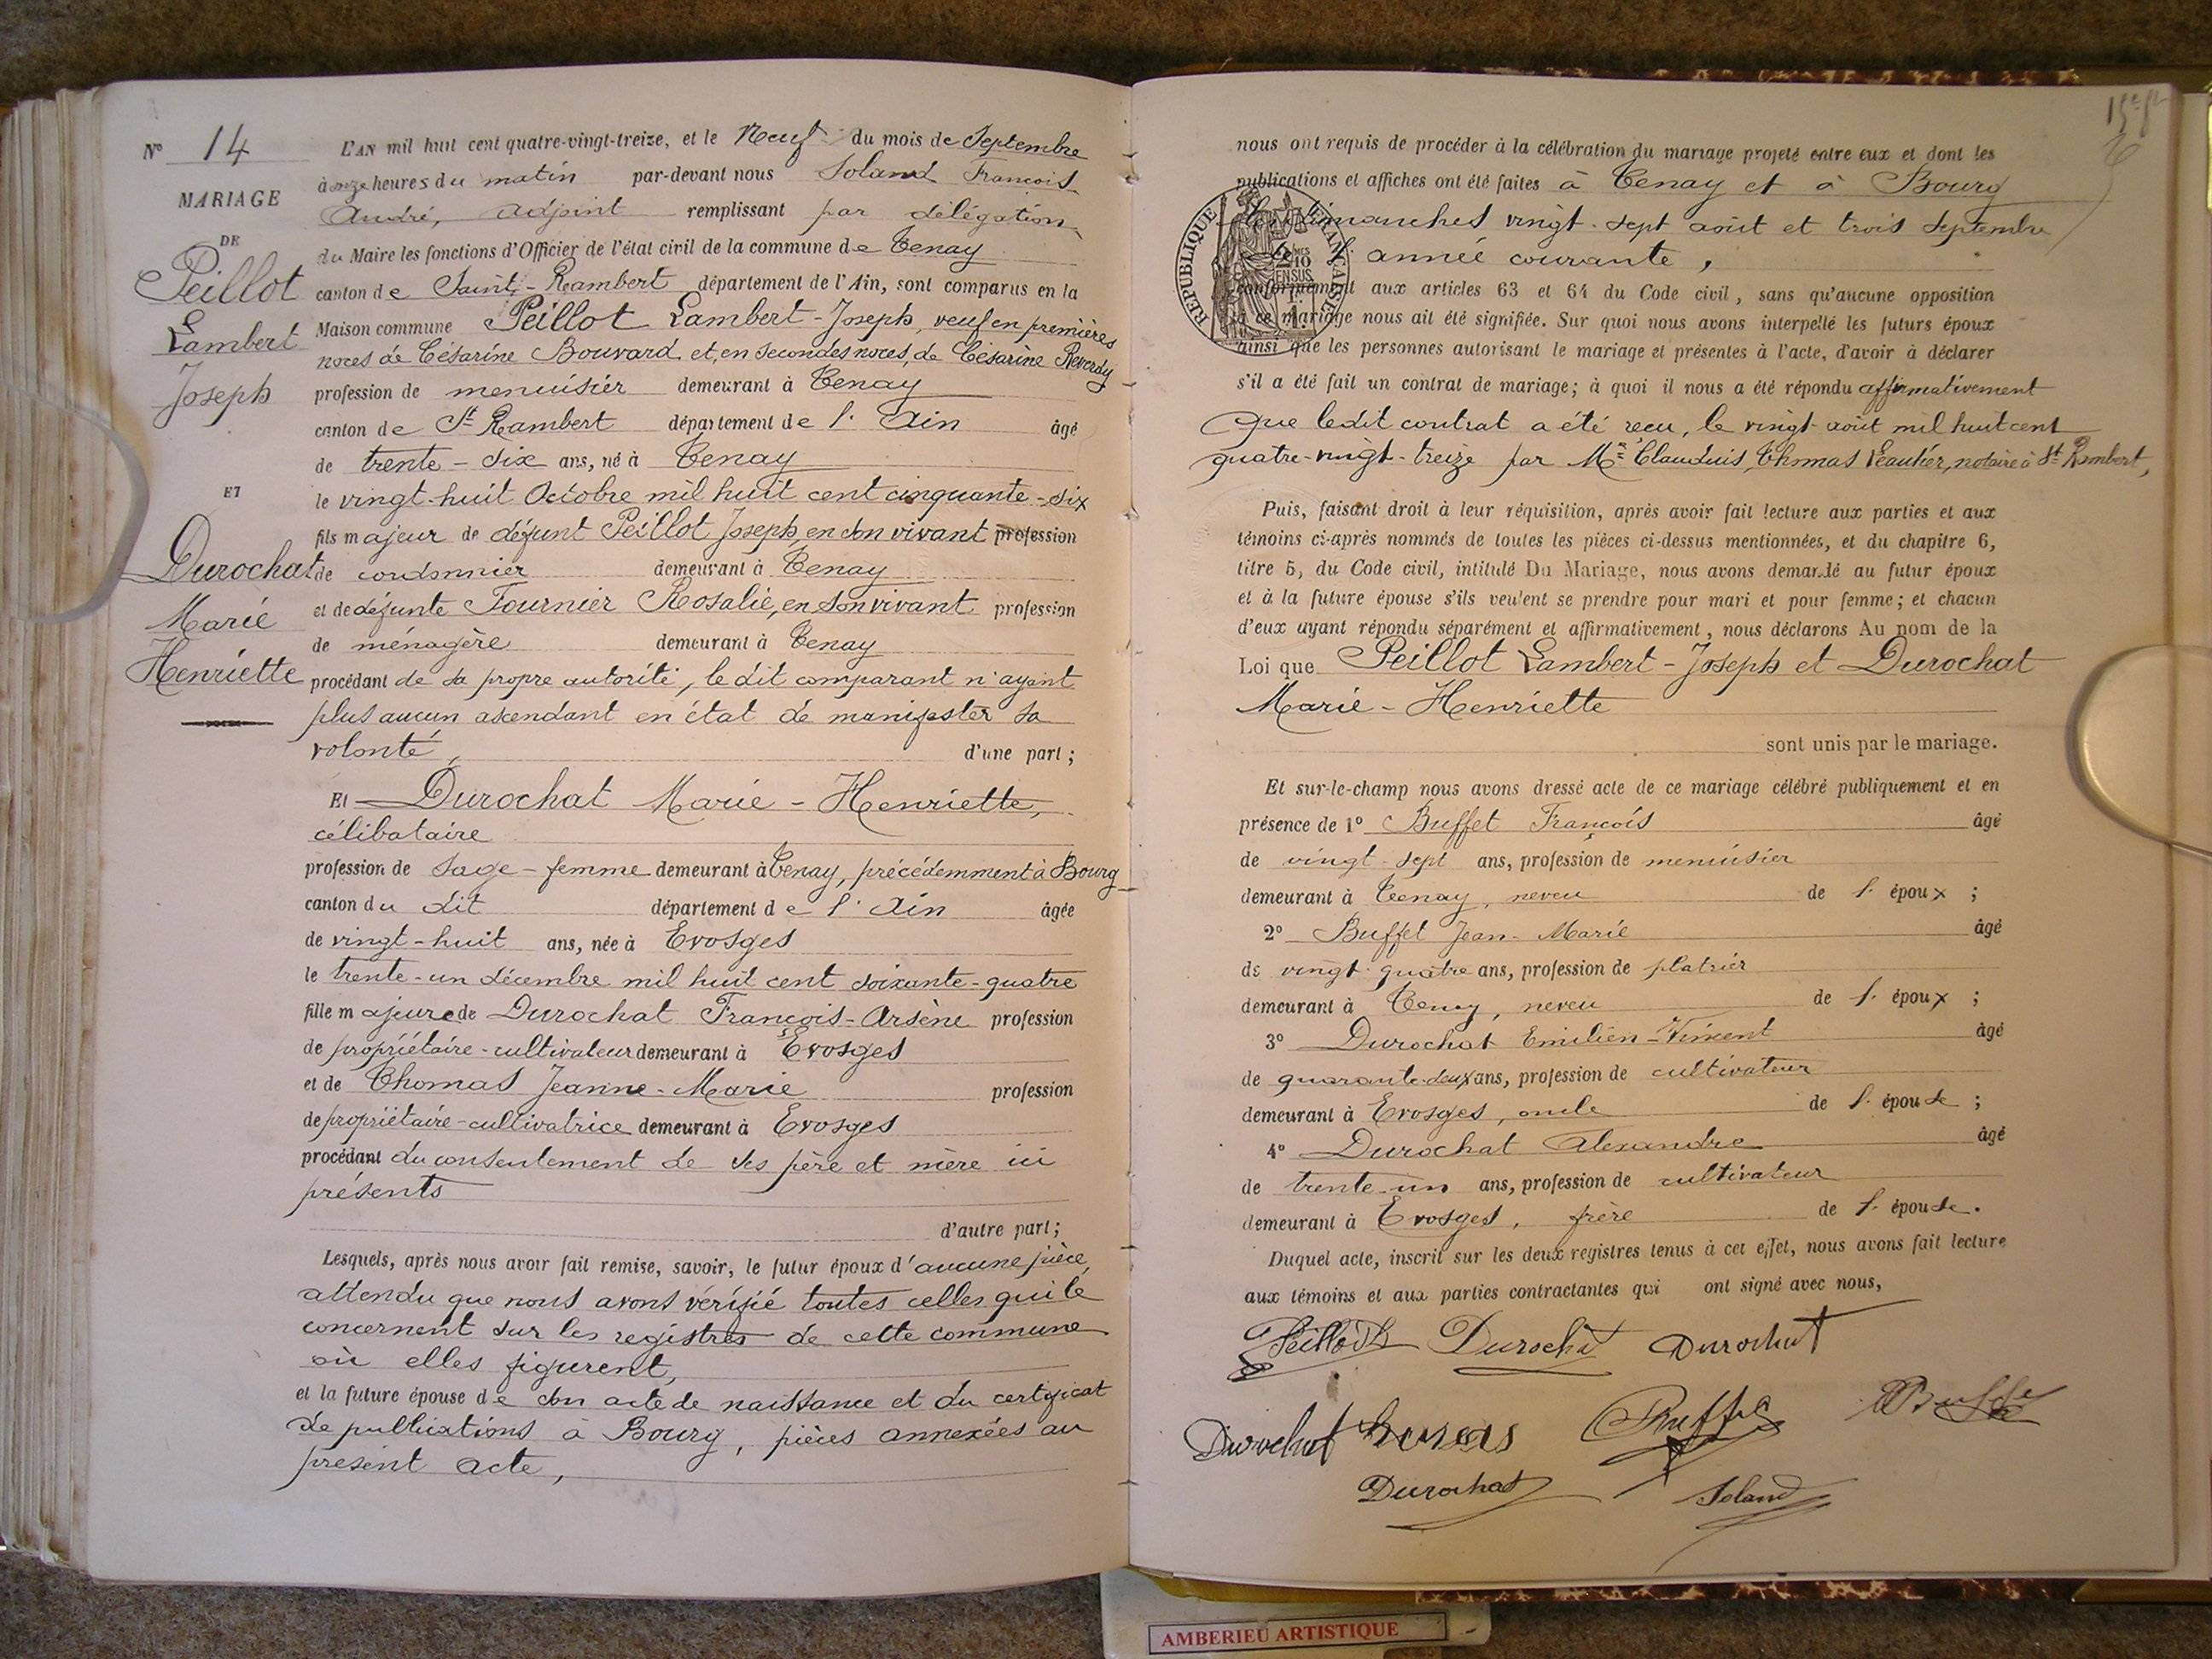 N° 14
MARIAGE
DE
Peillot
Lambert
Joseph
ET
Durochat
Marie
Henriette
L'AN mil huit cent quatre-vingt-treize, et le Neuf du mois de Septembre
à onze heures du matin par-devant nous Soland François
André, adjoint remplissant par délégation
du Maire les fonctions d'Officier de l'état civil de la commune de Tenay
canton de Saint-Rambert département de l'Ain, sont comparus en la
Maison commune Peillot Lambert-Joseph, veuf en premières
noces de Césarine Bouvard et, en secondes noces, de Césarine Reverdy
profession de menuisier demeurant à Tenay
canton de St Rambert département de l'Ain âgé
de trente-six ans, né à Tenay
le vingt-huit Octobre mil huit cent cinquante-six
fils majeur de défunt Peillot Joseph, en son vivant profession
de cordonnier demeurant à Tenay
et de défunte Tournier Rosalie, en son vivant profession
de ménagère demeurant à Tenay
procédant de sa propre autorité, le dit comparant n'ayant
plus aucun ascendant en état de manifester sa
volonté, d'une part;
Et Durochat Marie-Henriette,
célibataire
profession de sage-femme demeurant à Tenay, précédemment à Bourg
canton du dit département de l'Ain âgée
de vingt-huit ans, née à Evosges
le trente-un décembre mil huit cent soixante-quatre
fille majeure de Durochat François-Arsène profession
de propriétaire-cultivateur demeurant à Evosges
et de Thomas Jeanne-Marie profession
de propriétaire-cultivatrice demeurant à Evosges
procédant du consentement de ses père et mère ici
présents
d'autre part;
Lesquels, après nous avoir fait remise, savoir, le futur époux d'aucune pièce,
attendu que nous avons vérifié toutes celles qui le
concernent sur les registres de cette commune
où elles figurent,
et la future épouse de son acte de naissance et du certificat
de publications à Bourg, pièces annexées au
présent acte,
nous ont requis de procéder à la célébration du mariage projeté entre eux et dont les
publications et affiches ont été faites à Tenay et à Bourg
les dimanches vingt-sept août et trois septembre
de l'année courante,
REPUBLIQUE FRANÇAISE
2/10 EN SUS
conformément aux articles 63 et 64 du Code civil, sans qu'aucune opposition
à ce mariage nous ait été signifiée. Sur quoi nous avons interpellé les futurs époux
ainsi que les personnes autorisant le mariage et présentes à l'acte, d'avoir à déclarer
s'il a été fait un contrat de mariage; à quoi il nous a été répondu affirmativement
Que ledit contrat a été reçu, le vingt août mil huit cent
quatre-vingt-treize par Me Thomas notaire à St Rambert,
Puis, faisant droit à leur réquisition, après avoir fait lecture aux parties et aux
témoins ci-après nommés de toutes les pièces ci-dessus mentionnées, et du chapitre 6,
titre 5, du Code civil, intitulé Du Mariage, nous avons demandé au futur époux
et à la future épouse s'ils veulent se prendre pour mari et pour femme; et chacun
d'eux ayant répondu séparément et affirmativement, nous déclarons Au nom de la
Loi que Peillot Lambert-Joseph et Durochat
Marie-Henriette
sont unis par le mariage.
Et sur-le-champ nous avons dressé acte de ce mariage célébré publiquement et en
présence de 1° Buffet François âgé
de vingt-sept ans, profession de menuisier
demeurant à Tenay, neveu de l'époux;
2° Buffet Jean-Marie âgé
de vingt-quatre ans, profession de platrier
demeurant à Tenay, neveu de l'époux;
3° Durochat Emilien-Vincent âgé
de quarante-deux ans, profession de cultivateur
demeurant à Evosges, oncle de l'épouse;
4° Durochat Alexandre âgé
de trente-un ans, profession de cultivateur
demeurant à Evosges, frère de l'épouse.
Duquel acte, inscrit sur les deux registres tenus à cet effet, nous avons fait lecture
aux témoins et aux parties contractantes qui ont signé avec nous,
Peillot Durochat Durochat
Durochat Buffet Buffet
Durochat Soland
AMBERIEU ARTISTIQUE